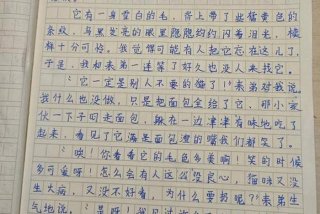 它有一身雪白的毛，背上带了些橘黄色的
条纹，乌黑发亮的眼里隐隐约约闪着泪光，模
样十分可怜。我觉得可能有人把它忘在这儿了，
于是，我和表弟一连等了好久也没人来找它。
“它一定是别人不要的猫了！”表弟对我说，
我什么也没做，只是把面包全给了它，那小家
伙一下子叼走面包，躲在一边津津有味地吃了
起来，看见了它满是面包渣的嘴我们都笑了。
“噢！你看看它的毛色多美啊！笑的时候
多可爱呀！怎么会有人这么没良心，猫咪又没
生大病，又没不好看，为什么要丢呢？”表弟生
气地说。“是呀！我